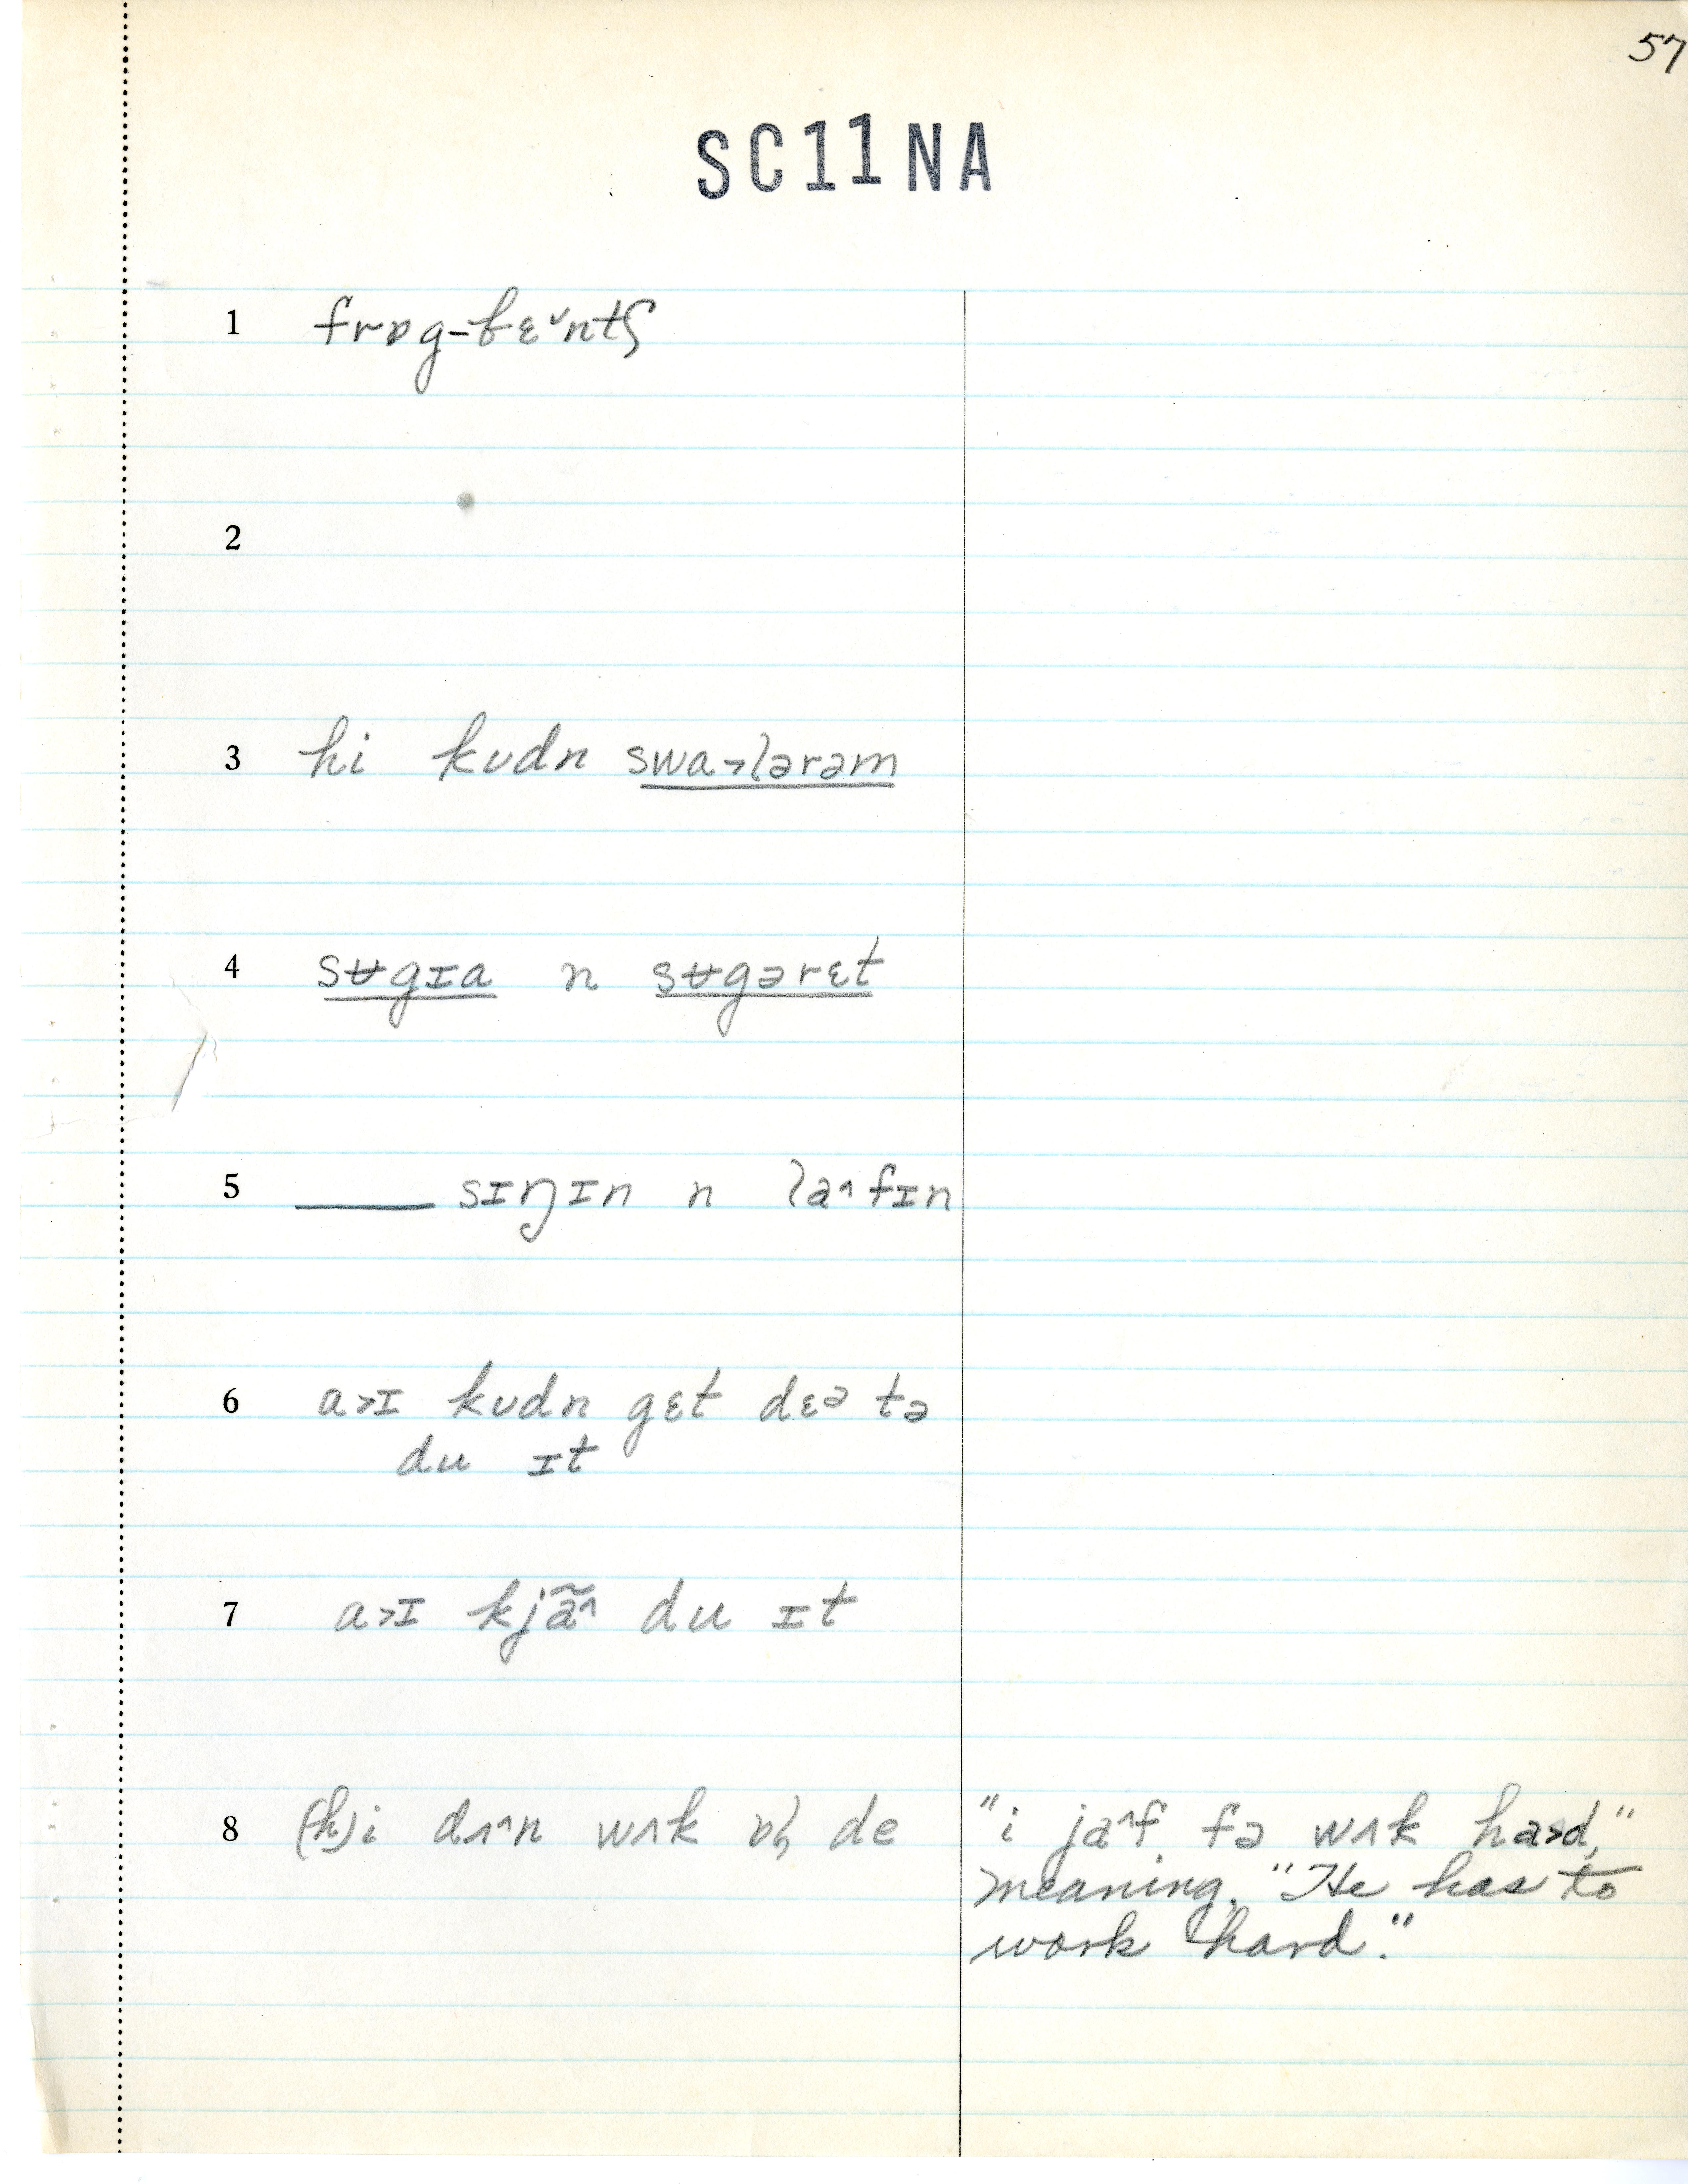 57
SC11NA
1 frɒg-bɛ˅ntʃ
2
3 hi kʊdn swa˃lərəm
4 sʉgɪa n sʉgərɛt
5 ____ sɪŋɪn n la˄fɪn
6 a˃ɪ kʊdn gɛt dɛə tə
du ɪt
7 a˃ɪ kjã˄ du ɪt
8 (h)i dʌ˄n wʌk de "i ja˄f fə wʌk ha˃d,"
meaning, "He has to
work hard."